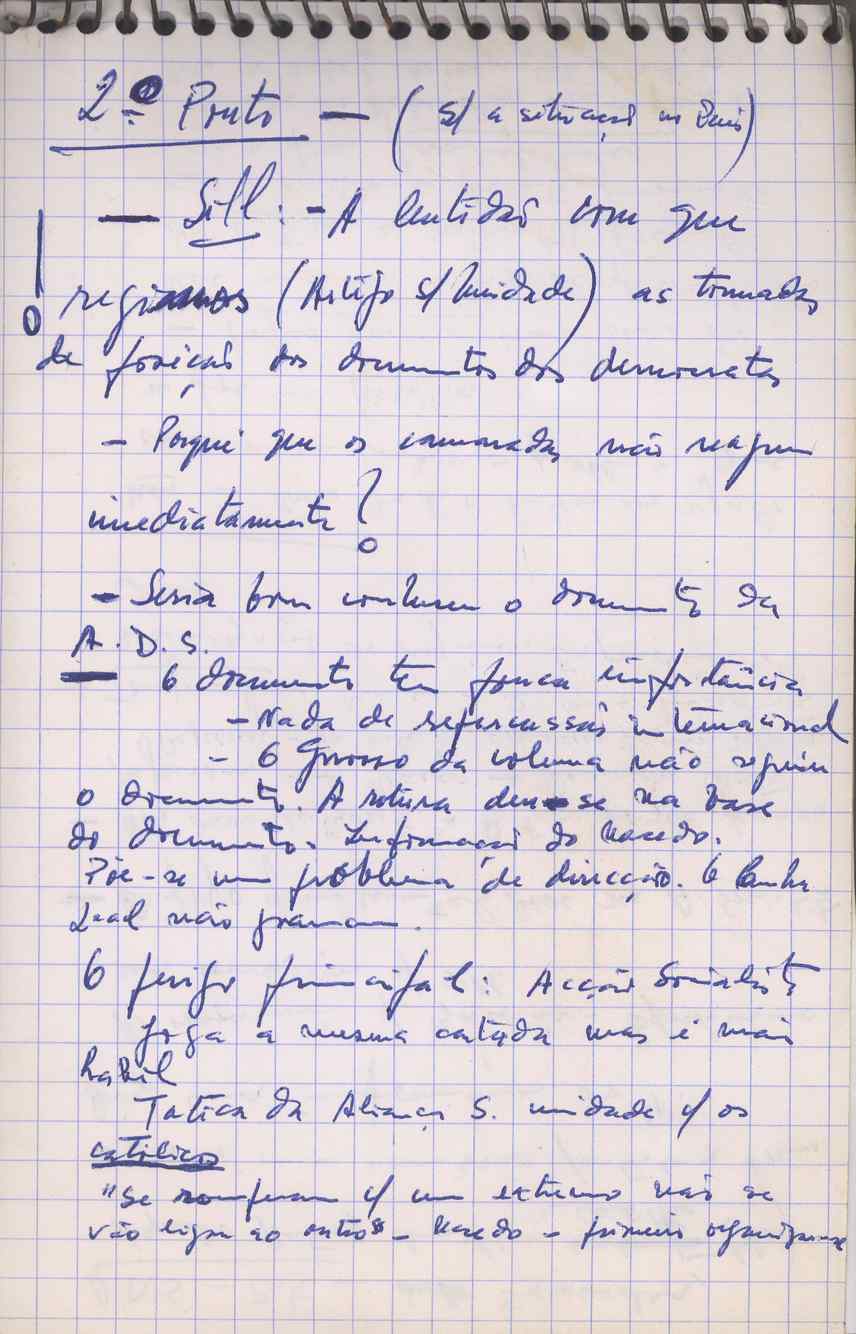 2.º Ponto — (s/ a situação no País)
— Sill: - A lentidão com que
(Artigo s/ Unidade) as tomadas
de posição dos documentos dos democratas
- Porquê que os camaradas não reagem
imediatamente?
- Seria bom conhecer o documento da
A.D.S.
— O documento tem pouca importância
- Nada de repercussão internacional
- O Grosso da coluna não seguiu
o documento. A rotura deu-se na base
do documento. Informação do Macedo.
Põe-se um problema de direcção. O Cunha
Leal não gramam.
O perigo principal: Acção Socialista
Joga a mesma cartada mas é mais
habil
Tatica da Aliança S. unidade c/ os
catolicos
"Se romperam c/ um extremo não se
vão ligar ao outro" - Macedo - primeiro